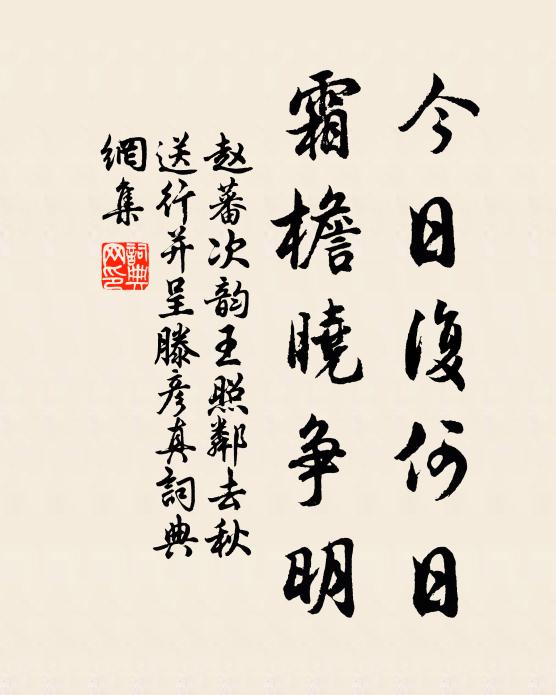 今日復何日
霜檐曉争明
赵蕃次韵王照鄰去秋
送行并呈滕彦真詞典
網集
詞典
网印